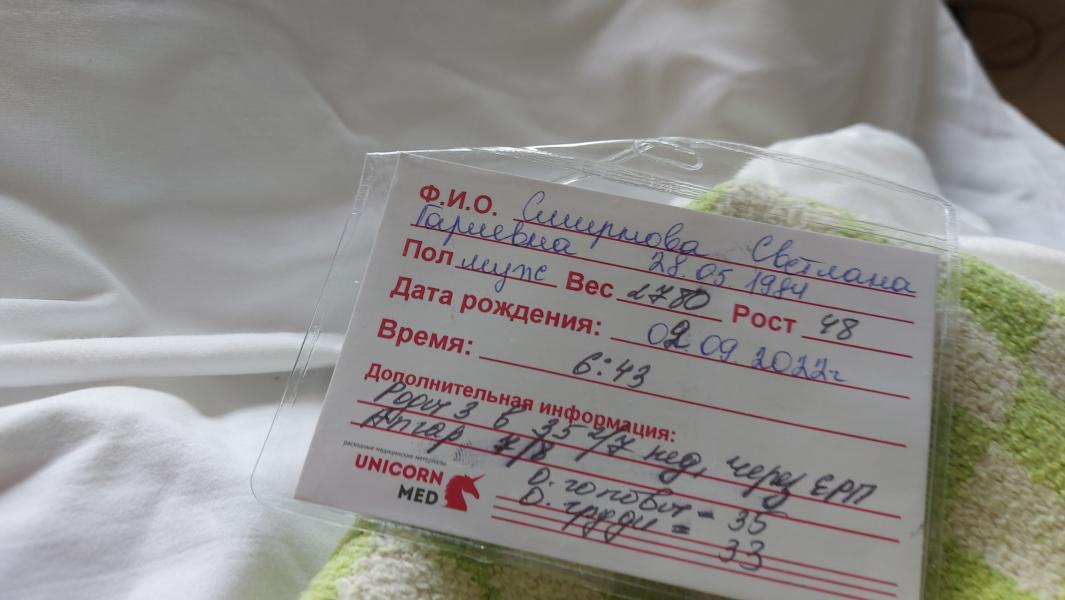 Ф.И.О. Смирнова Светлана
Гариевна 28.05.1984
Пол муж Вес 2780 Рост 48
Дата рождения: 02.09 2022г
Время: 6:43
Дополнительная информация:
Роды 3 в 35 4/7 нед, через ЕРП
Апгар 7/8
О. головы = 35
О. груди = 33
расходные медицинские материалы
UNICORN
MED